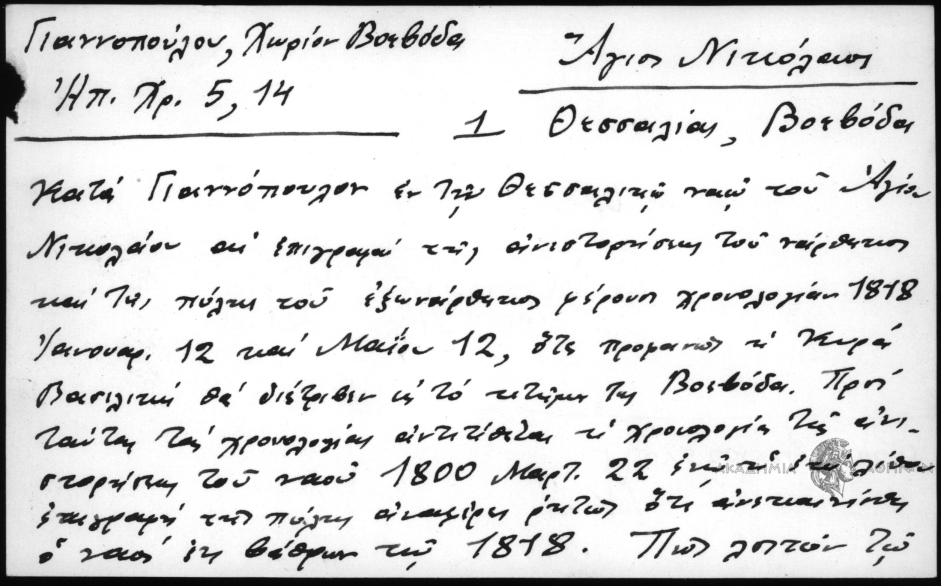 Γιαννοπούλου, Χωρίον Βοεβόδα
Ἠπ. Χρ. 5, 14
Ἅγιος Νικόλαος
1 Θεσσαλίας, Βοεβόδα
Κατά Γιαννόπουλον ἐν τῷ Θεσσαλικῷ ναῷ τοῦ Ἁγίου
Νικολάου αἱ ἐπιγραφαί τῆς ἀνιστορήσεως τοῦ νάρθηκος
καί τῆς πύλης τοῦ ἐξωνάρθηκος φέρουσι χρονολογίαν 1818
Ἰανουαρ. 12 καί Μαΐου 12, ὅτε προφανῶς ἡ Κυρά
Βασιλική θά διέτριβεν εἰς τό κτῆμα της Βοεβόδα. Πρός
ταύτας τάς χρονολογίας ἀντιτίθεται ἡ χρονολογία τῆς ἀνι-
στορήσεως τοῦ ναοῦ 1800 Μαρτ. 22 ἐνῷ
ΑΚΑΔΗΜΙΑ ΑΘΗΝΩΝ
ἐπιγραφή τῆς πύλης ἀναφέρει ῥητῶς ὅτι ἀνεκαινίσθη
ὁ ναός ἐκ βάθρων τῷ 1818. Πῶς λοιπόν τῷ